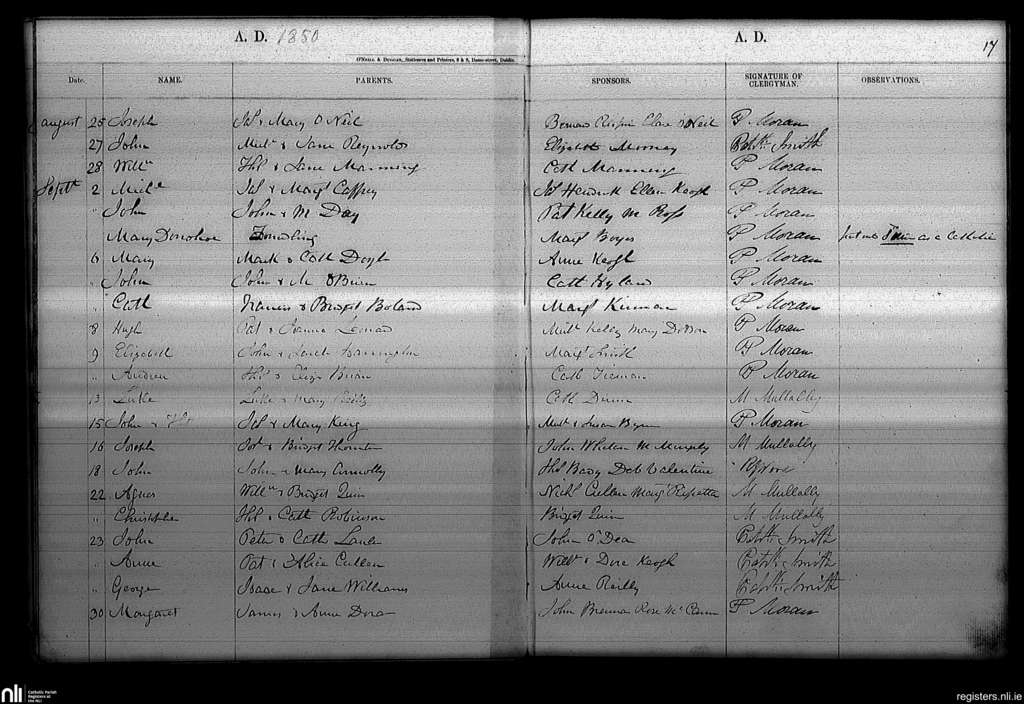 A. D. 1850
A. D.
17
O'NEILL & DUGGAN, Stationers and Printers, 8 & 9, Dame-street, Dublin.
Date. NAME. PARENTS. SPONSORS. SIGNATURE OF CLERGYMAN. OBSERVATIONS.
august 25 Joseph Jas & Mary O Neil Bernard Clare O Neil P Moran
27 John Michl & Jane Reynolds Elizabeth Murray Smith
28 Willm Ths & Jane Manning Cath Manning P Moran
Septr 2 Michl Jas & Margt Caffrey Jas Ellen Keogh P Moran
" John John & M Day Pat Kelly M Ross P Moran
Mary Donohoe Foundling Margt Boyes P Moran as a Catholic
6 Mary Mark & Cath Doyle Anne Keogh P Moran
" John John & M O Brien Cath Hyland P Moran
" Cath Francis & Bridget Boland Margt Kiernan P Moran
8 Hugh Pat & Lenard Michl Kelly Mary Dobson P Moran
9 Elizabeth John & Sarah Margt Smith P Moran
" Andrew Ths & Eliza Brian Cath Tiernan P Moran
13 Luke Luke & Mary Reilly Cath Dunne M Mullally
15 John & Ths Jas & Mary King Michl & Susan Byrne P Moran
16 Joseph Jos & Bridget Thornton John Whelan M Murphy M Mullally
18 John John & Mary Connolly Ths Deb Valentine
22 Agnes Willm & Bridget Quin Nichs Cullen Margt M Mullally
" Christopher Ths & Cath Robinson Bridget Quin M Mullally
23 John Peter & Cath John O'Dea Smith
" Anne Pat & Alice Cullen Willm & Dora Keogh Smith
" George Isaac & Jane Williams Anne Reilly Smith
30 Margaret James & Anne Doran John Brennan Rose Mc Cann P Moran
nli Catholic Parish Registers at the NLI
registers.nli.ie